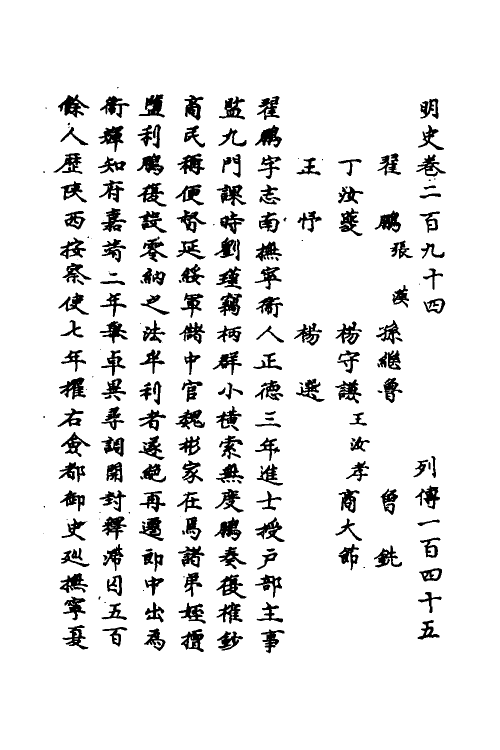 明史卷二百九十四 列傳一百四十五
翟鵬 張漢 孫繼魯 曾銑
丁汝夔 楊守謙 王汝孝 商大節
王忬 楊選
翟鵬字志南撫寧衞人正德三年進士授戶部主事
監九門課時劉瑾竊柄群小橫索無度鵬奏復榷鈔
商民稱便督延綏軍儲中官魏彬家在焉諸弟姪擅
鹽利鵬復設零納之法牟利者遂絕再遷郎中出為
衞輝知府嘉靖二年舉卓異尋調開封釋滯囚五百
餘人歷陝西按察使七年擢右僉都御史廵撫寧夏